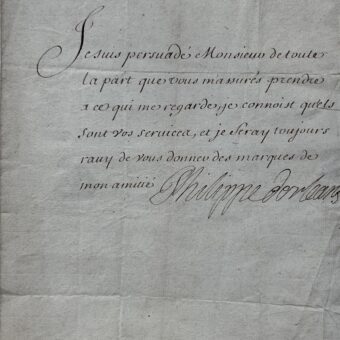 Je suis persuadé Monsieur de toute
la part que vous m'assurés prendre
a ce qui me regarde, je connoist quels
sont vos services, et je seray toujours
ravy de vous donner des marques de
mon amitié Philippe dorleans